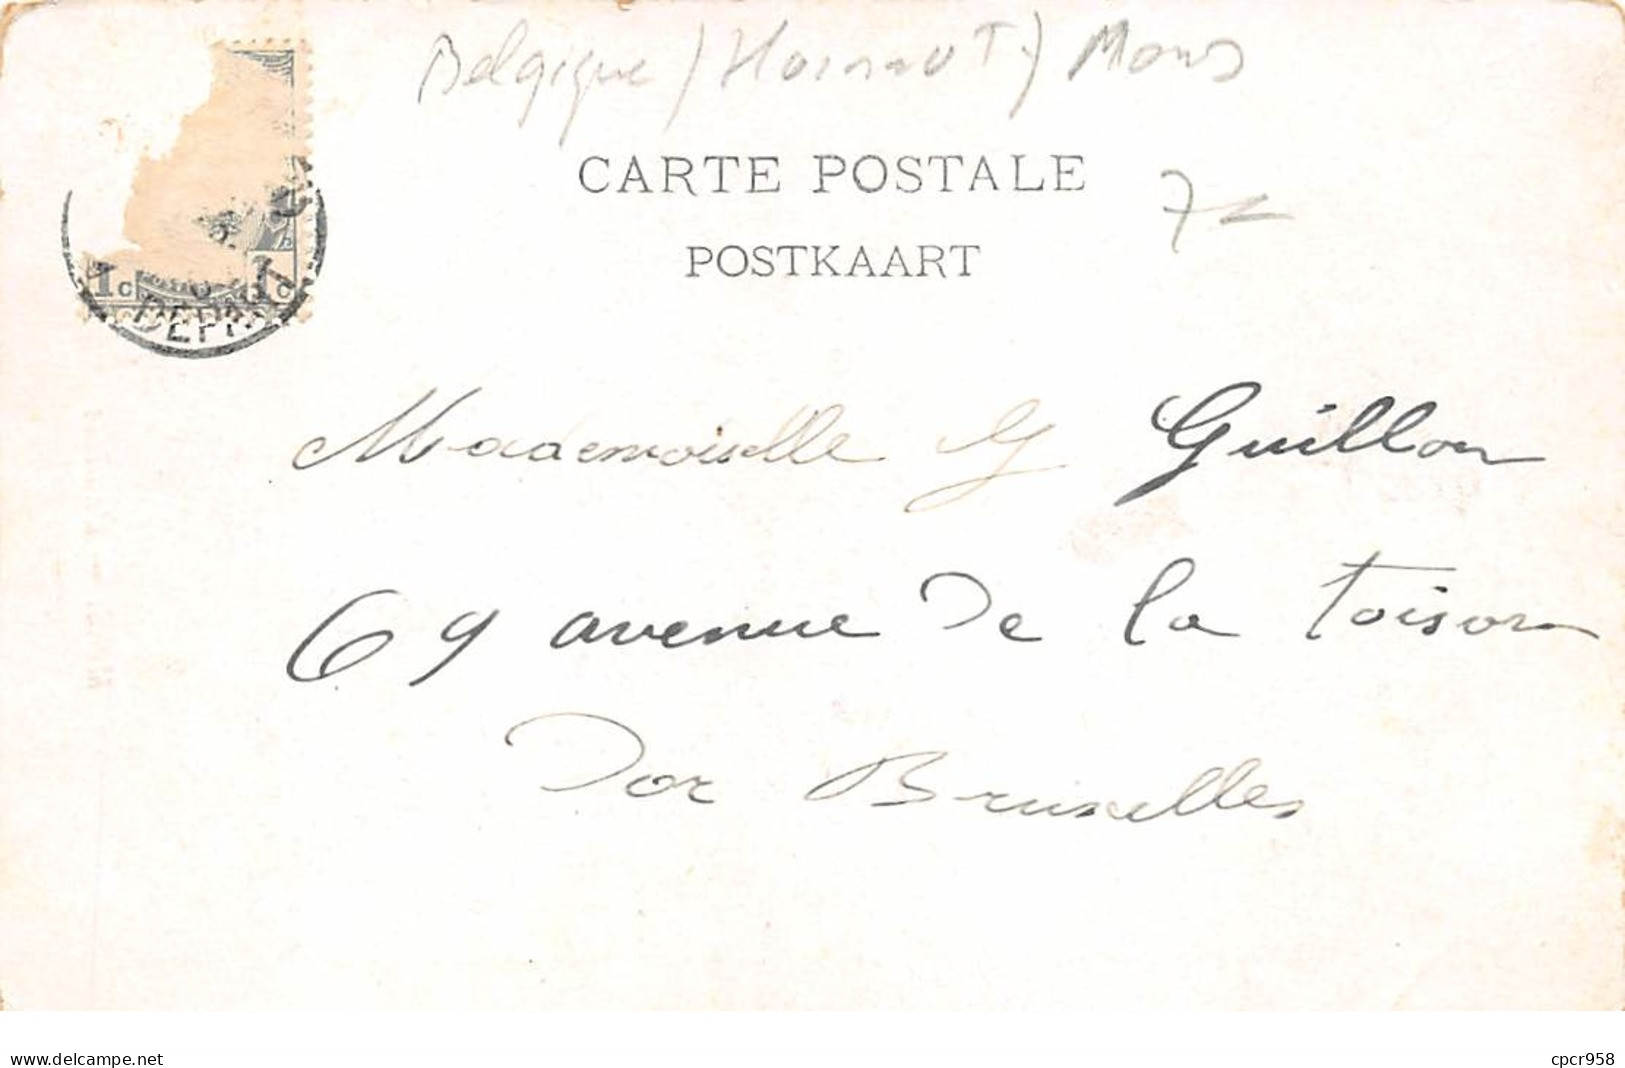 Belgique / (Hainaut) Mons
CARTE POSTALE
7-
POSTKAART
1c 1c
DEPART
Mademoiselle G Guillon
69 avenue De la toison
Dor Bruxelles
www.delcampe.net
cpcr958